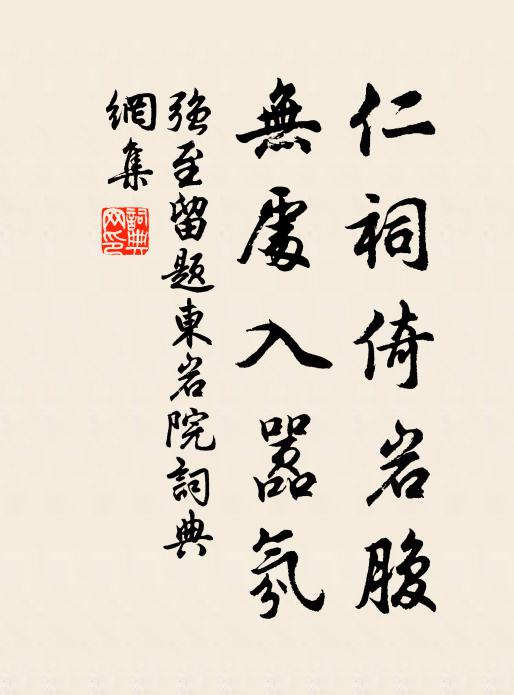 仁祠倚岩腹
無處入囂氛
強至留題東岩院詞典
網集
詞典網印